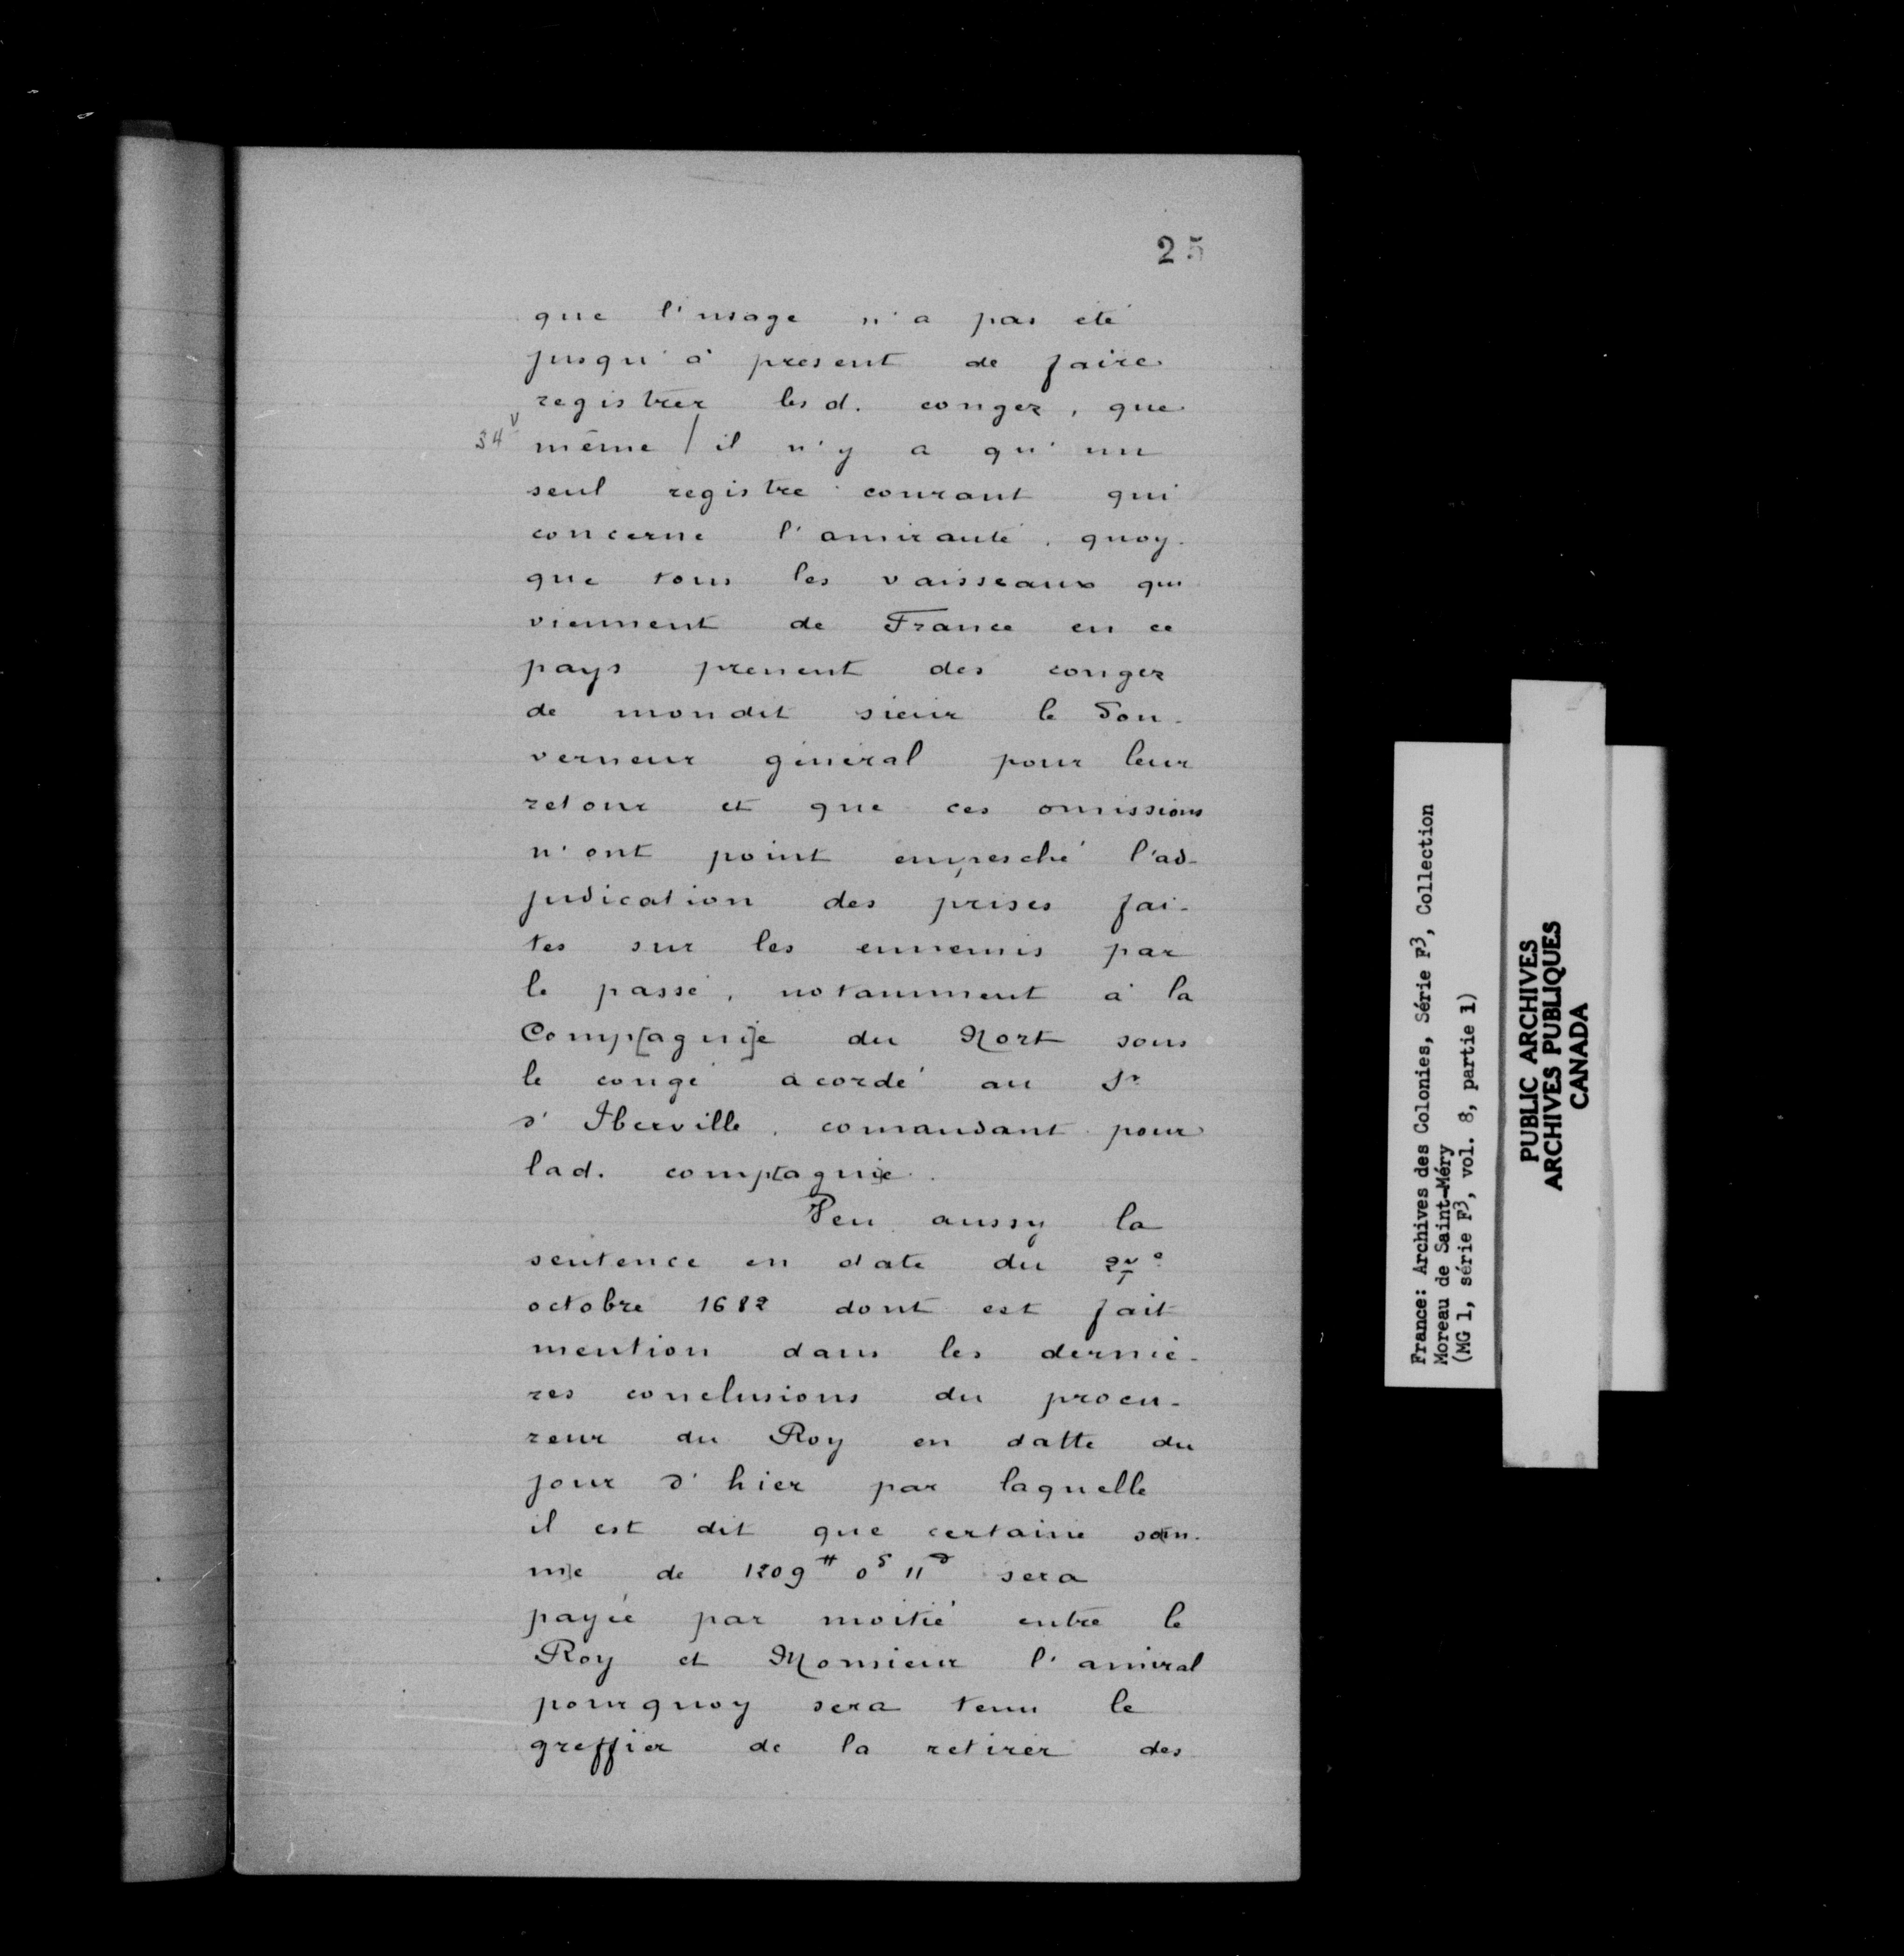 25
que l'usage n'a pas été
jusqu'à présent de faire
registrer les d. congez, que
34v même / il n'y a qu'un
seul registre courant qui
concerne l'amirauté, quoy-
que tous les vaisseaux qui
viennent de France en ce
pays prenent des congez
de mondit sieur le Gou-
verneur général pour leur
retour et que ces omissions
n'ont point empesché l'ad-
judication des prises fai-
tes sur les ennemis par
le passé, notamment à la
Comp[agni]e du Nort sous
le congé acordé au Sr
d'Iberville, comandant pour
lad. comp[agni]e.
Veu aussy la
sentence en date du
octobre 1682 dont est fait
mention dans les derniè-
res conclusions du procu-
reur du Roy en datte du
jour d'hier par laquelle
il est dit que certaine som-
me de 1209# 0s 11d sera
payée par moitié entre le
Roy et Monsieur l'amiral
pourquoy sera tenu le
greffier de la retirer des
France: Archives des Colonies, Série F3, Collection
Moreau de Saint-Méry
(MG 1, série F3, vol. 8, partie 1)
PUBLIC ARCHIVES
ARCHIVES PUBLIQUES
CANADA